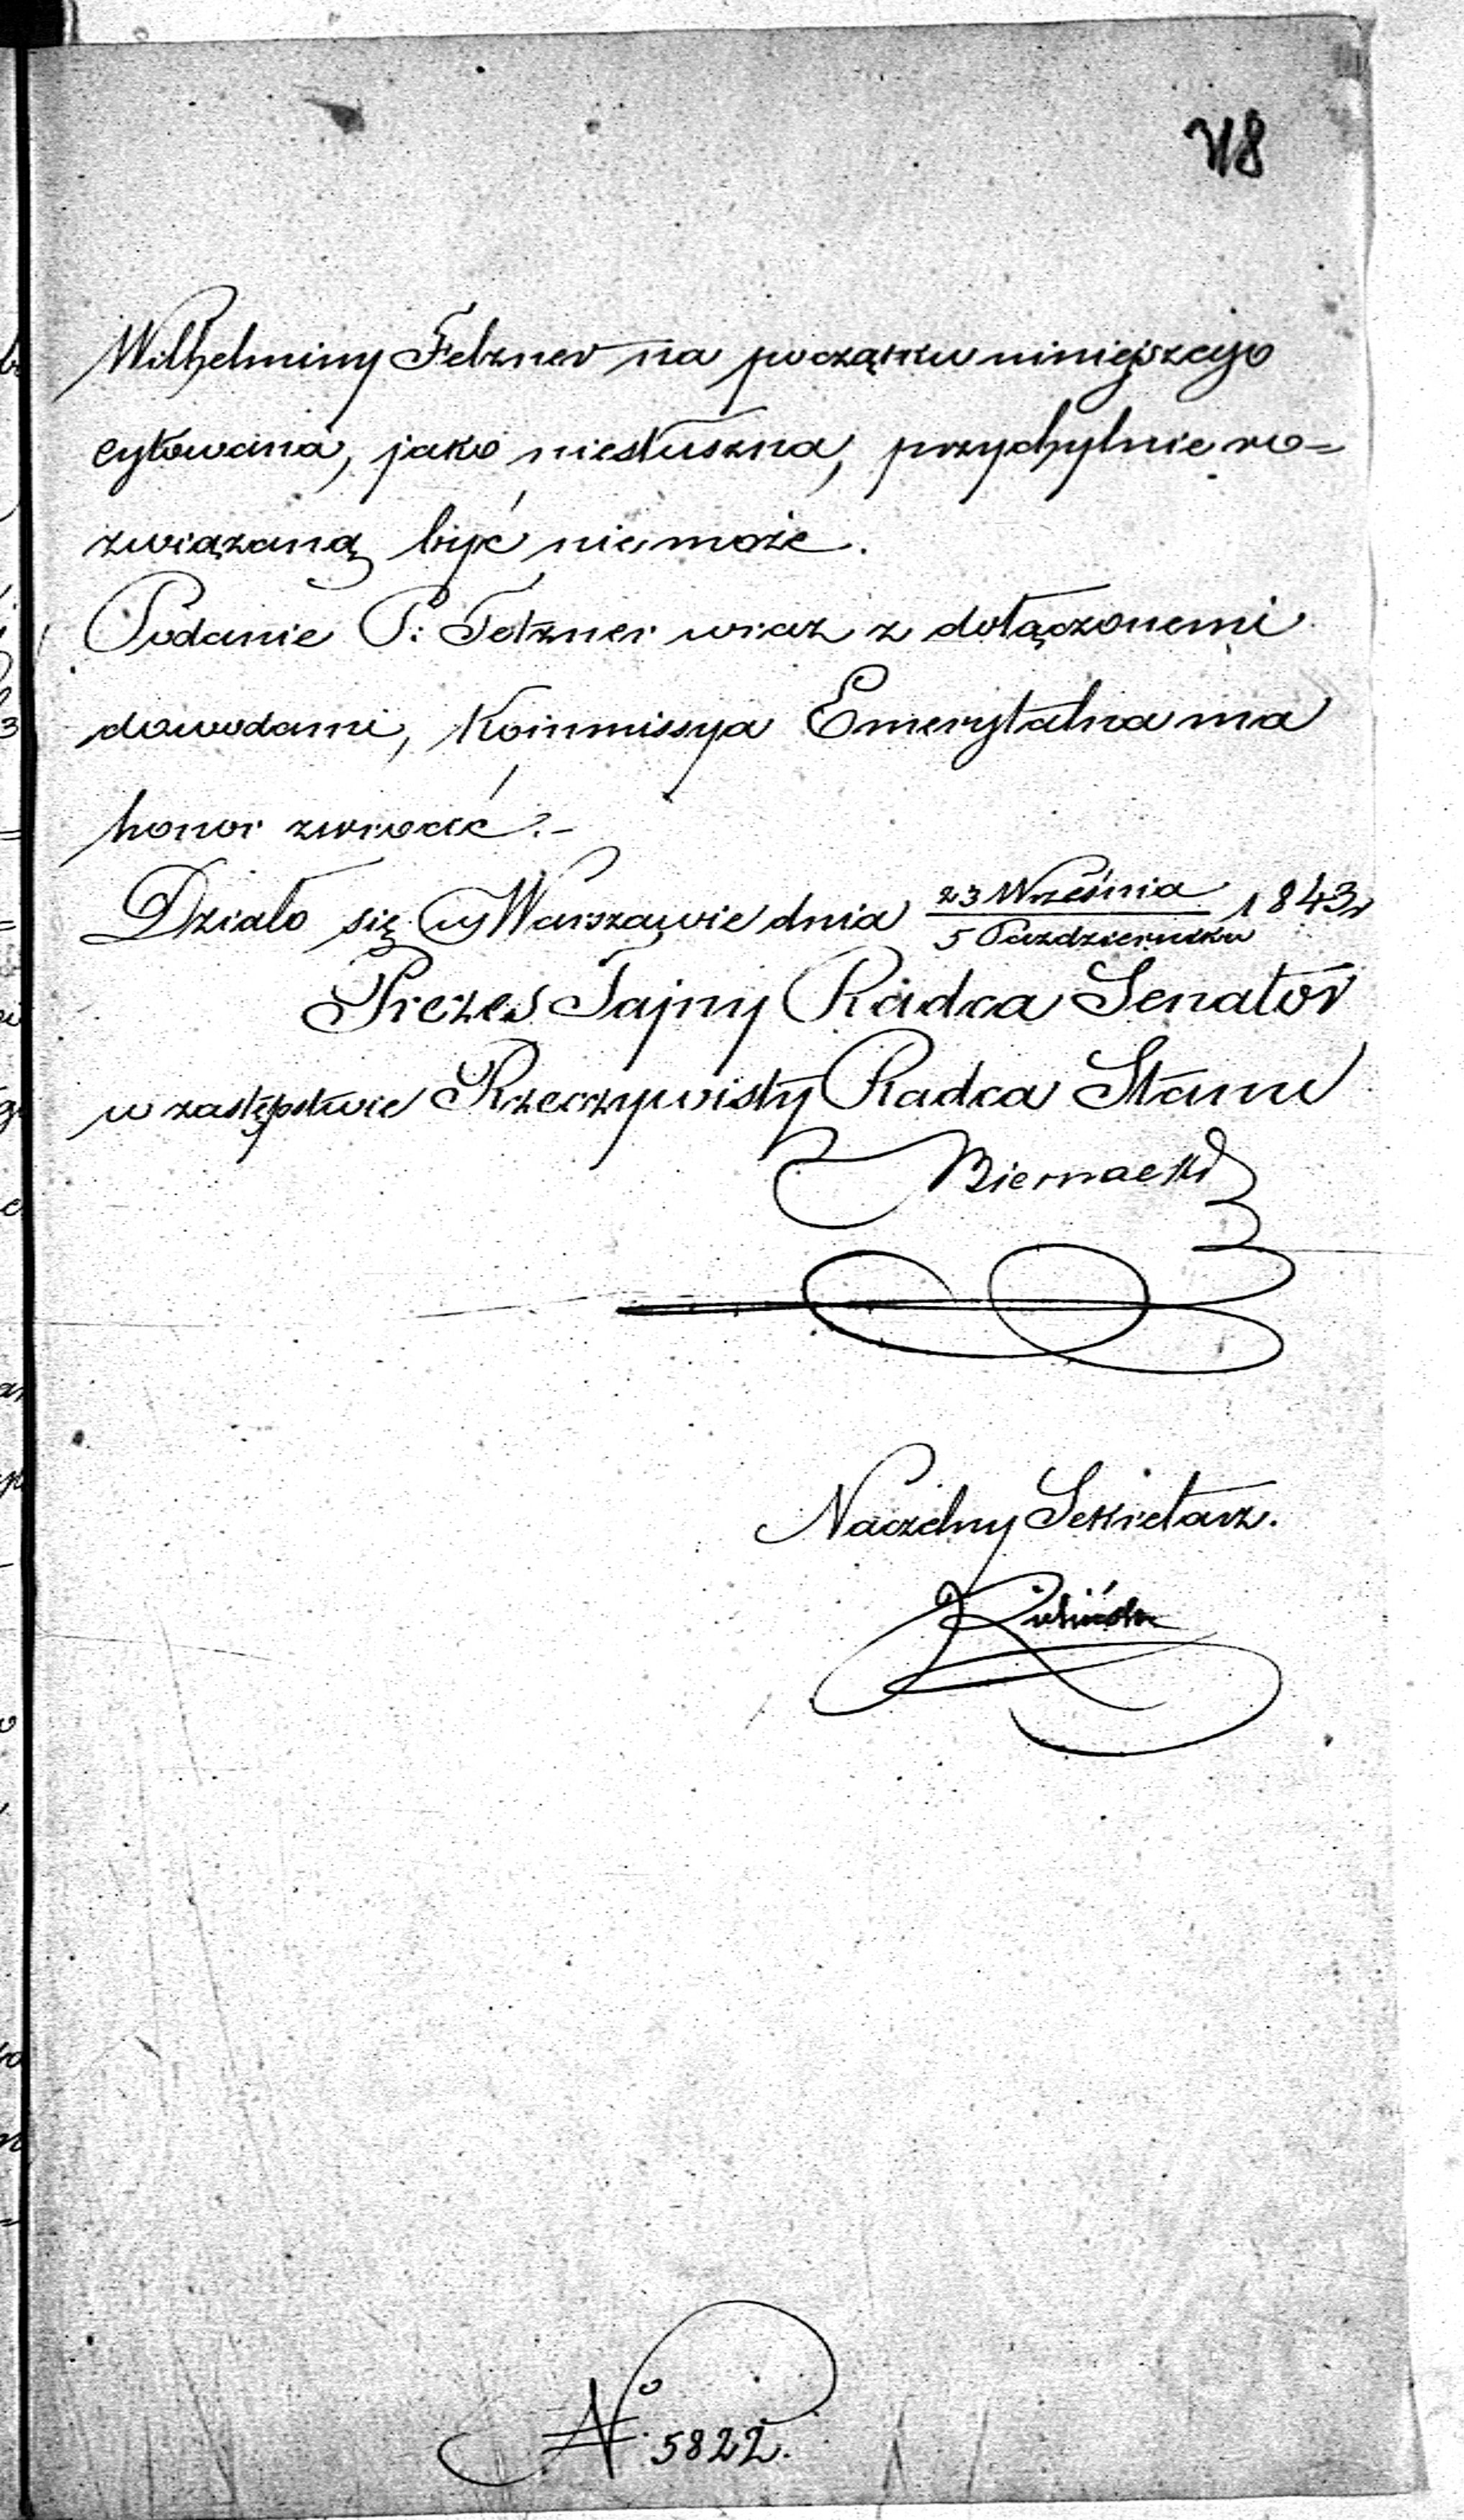 Wilhelminy Felzner na początku niniejszego
cytowana, jako niesłuszna, przychylnie ro=
związaną być niemoże.
Podanie P: Felzner wraz z dołączonemi
dowodami, Kommissya Emerytalna ma
honor zwrócić.-
Działo się w Warszawie dnia 23 Września / 5 Października 1843 r
Prezes Tajny Radca Senator
w zastępstwie Rzeczywisty Radca Stanu
Biernacki
Naczelny Sekretarz.
No 5822.